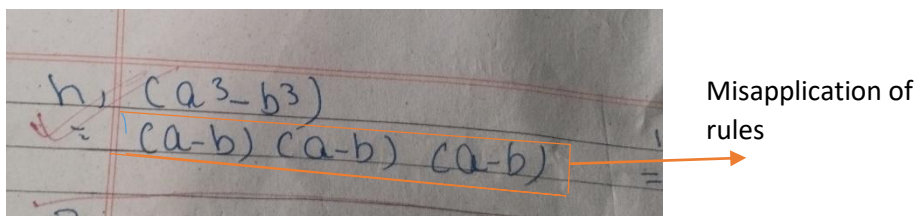 h, (a³-b³)
= (a-b) (a-b) (a-b)
=
Misapplication of
rules